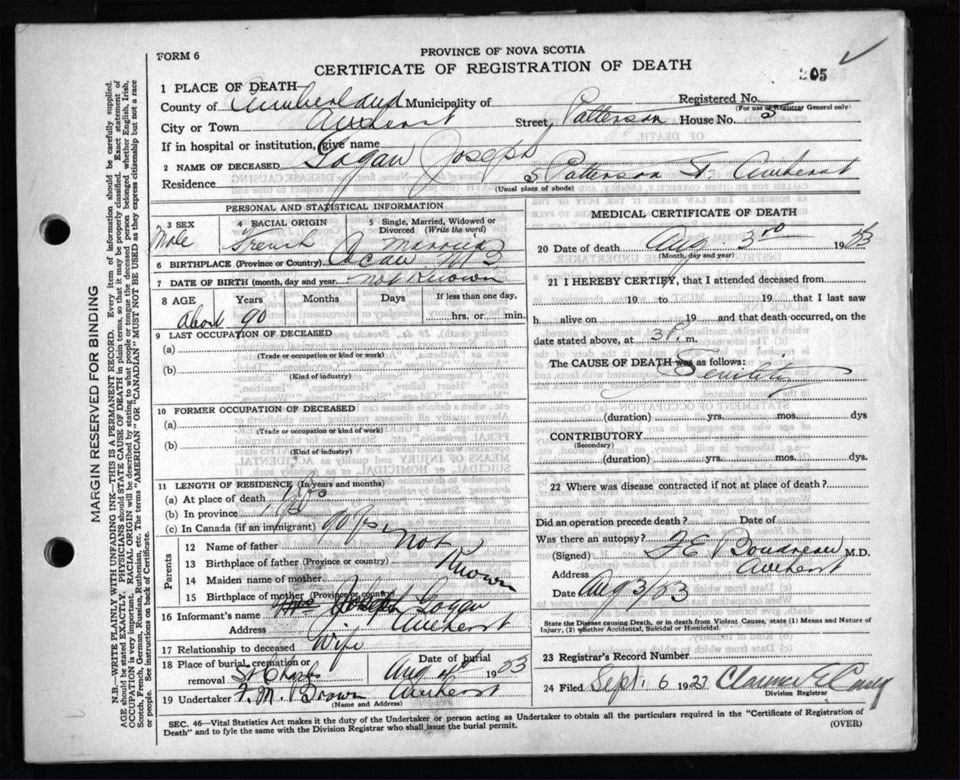 FORM 6
PROVINCE OF NOVA SCOTIA
CERTIFICATE OF REGISTRATION OF DEATH
205
1 PLACE OF DEATH
Registered No.
(For use of Registrar General only)
County of Cumberland Municipality of
City or Town Amherst Street, Patterson House No. 5
If in hospital or institution, give name
2 NAME OF DECEASED Gogan Joseph
Residence 5 Patterson St. Amherst
(Usual place of abode)
PERSONAL AND STATISTICAL INFORMATION
3 SEX
Male
4 RACIAL ORIGIN
French
5 Single, Married, Widowed or
Divorced (Write the word)
Married
6 BIRTHPLACE (Province or Country)
7 DATE OF BIRTH (month, day and year) Not Known
8 AGE
Years
Months
Days
If less than one day,
About 90
hrs. or min.
9 LAST OCCUPATION OF DECEASED
(a)
(Trade or occupation or kind of work)
(b)
(Kind of industry)
10 FORMER OCCUPATION OF DECEASED
(a)
(Trade or occupation or kind of work)
(b)
(Kind of industry)
11 LENGTH OF RESIDENCE (In years and months)
(a) At place of death
(b) In province
(c) In Canada (if an immigrant)
Parents
12 Name of father Not
13 Birthplace of father (Province or country)
Known
14 Maiden name of mother
15 Birthplace of mother (Province or country)
16 Informant's name Mrs Joseph Gogan
Address Amherst
17 Relationship to deceased Wife
18 Place of burial, cremation or
removal St Charles
Date of burial
Aug 1933
19 Undertaker Brown Amherst
(Name and Address)
MEDICAL CERTIFICATE OF DEATH
20 Date of death Aug. 3rd 1933
(Month, day and year)
21 I HEREBY CERTIFY, that I attended deceased from
19 to 19 that I last saw
h alive on 19 and that death occurred, on the
date stated above, at 3 P. m.
The CAUSE OF DEATH was as follows:
Senility
(duration) yrs. mos. dys
CONTRIBUTORY
(Secondary)
(duration) yrs. mos. dys.
22 Where was disease contracted if not at place of death?
Did an operation precede death? Date of
Was there an autopsy?
(Signed) Boudreau M.D.
Address Amherst
Date Aug 3/33
State the Disease causing Death, or in death from Violent Causes, state (1) Means and Nature of
Injury, (2) whether Accidental, Suicidal or Homicidal.
23 Registrar's Record Number
24 Filed Sept. 6 1933 Clarence Casey
Division Registrar
SEC. 46—Vital Statistics Act makes it the duty of the Undertaker or person acting as Undertaker to obtain all the particulars required in the "Certificate of Registration of
Death" and to fyle the same with the Division Registrar who shall issue the burial permit.
(OVER)
MARGIN RESERVED FOR BINDING
N.B.—WRITE PLAINLY WITH UNFADING INK—THIS IS A PERMANENT RECORD. Every item of information should be carefully supplied.
AGE should be stated EXACTLY. PHYSICIANS should STATE CAUSE OF DEATH in plain terms, so that it may be properly classified. Exact statement of
OCCUPATION is very important. RACIAL ORIGIN will be described by stating to what people or tongue the deceased person belonged whether English, Irish,
Scotch, French, German, Russian, Ruthenian, etc. The terms "AMERICAN" or "CANADIAN" MUST NOT BE USED as they express citizenship but not a race
or people. See instructions on back of Certificate.